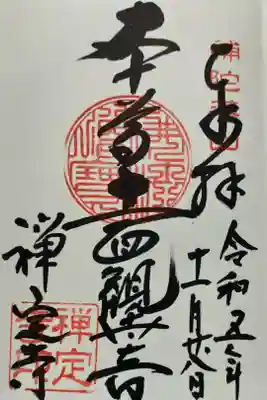 奉拝
令和五年
十一月廿八日
本尊十一面觀世音
禅定寺
禅定